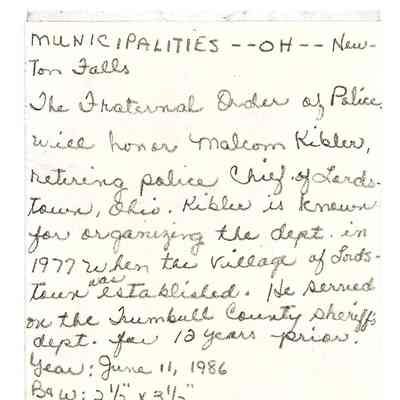 MUNICIPALITIES -- OH -- New-
Ton Falls
The Fraternal Order of Police
will honor Malcom Kibler,
retiring police Chief of Lords-
town, Ohio. Kibler is known
for organizing the dept. in
1977 when the village of Lords-
town was established. He served
on the Trumbull County sheriff's
dept. for 12 years prior.
Year: June 11, 1986
B&W: 2 1/2" x 3 1/2"